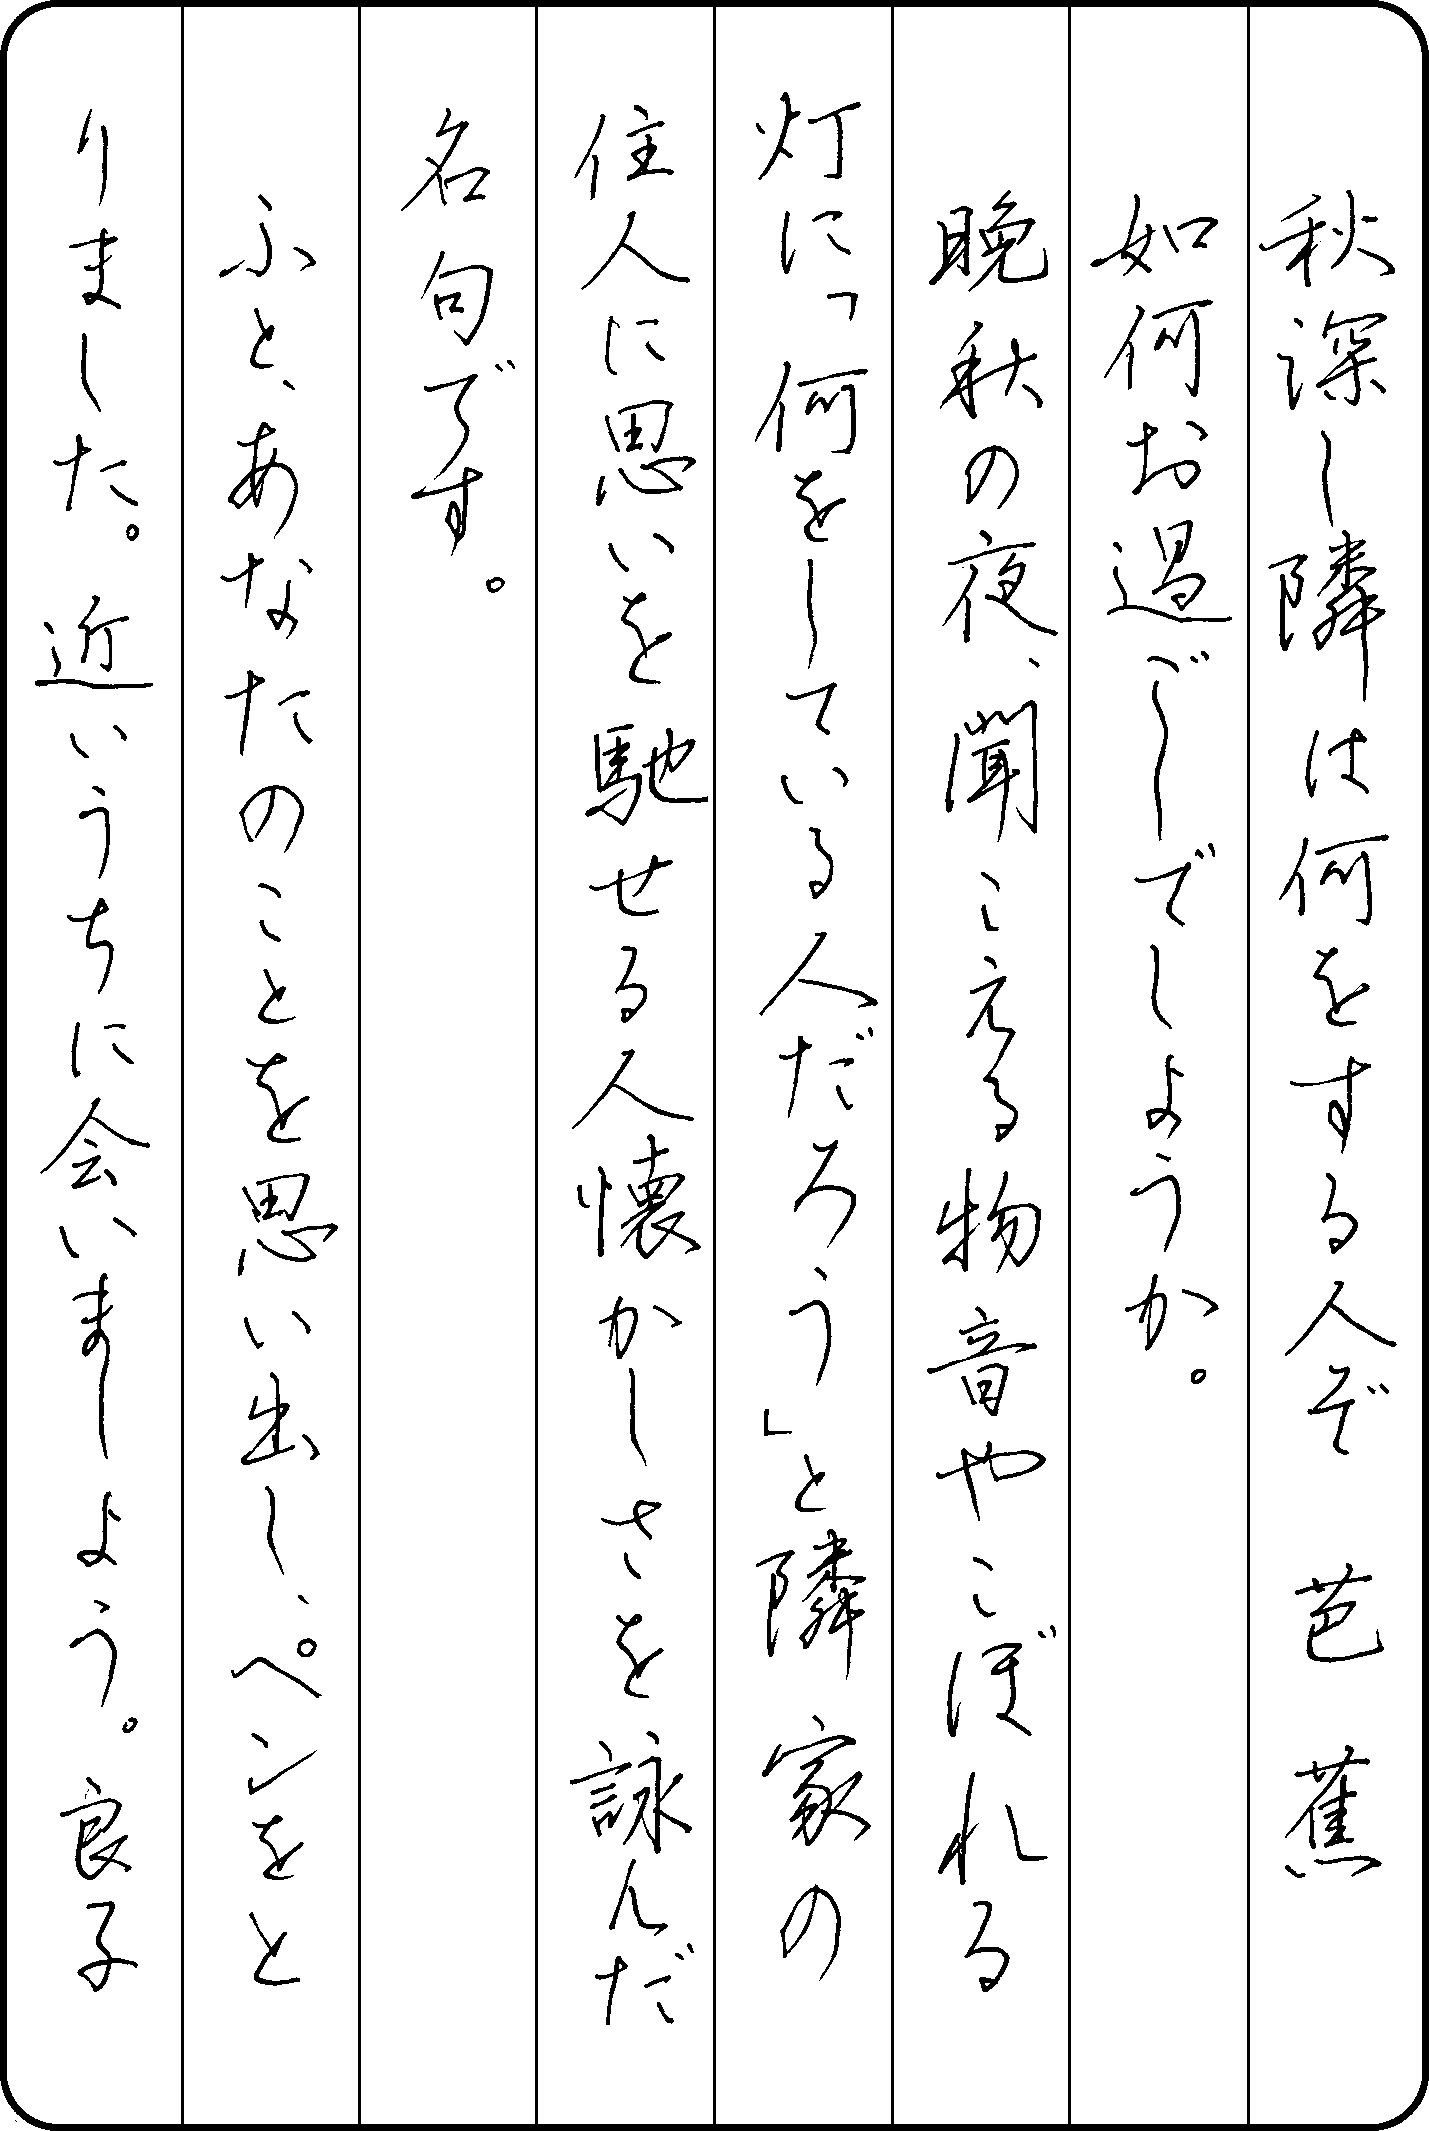 秋深し隣は何をする人ぞ　芭蕉
如何お過ごしでしようか。
晩秋の夜、聞こえる物音やこぼれる
灯に「何をしている人だろう」と隣家の
住人に思いを馳せる人懐かしさを詠んだ
名句です。
ふと、あなたのことを思い出し、ペンをと
りました。近いうちに会いましよう。良子